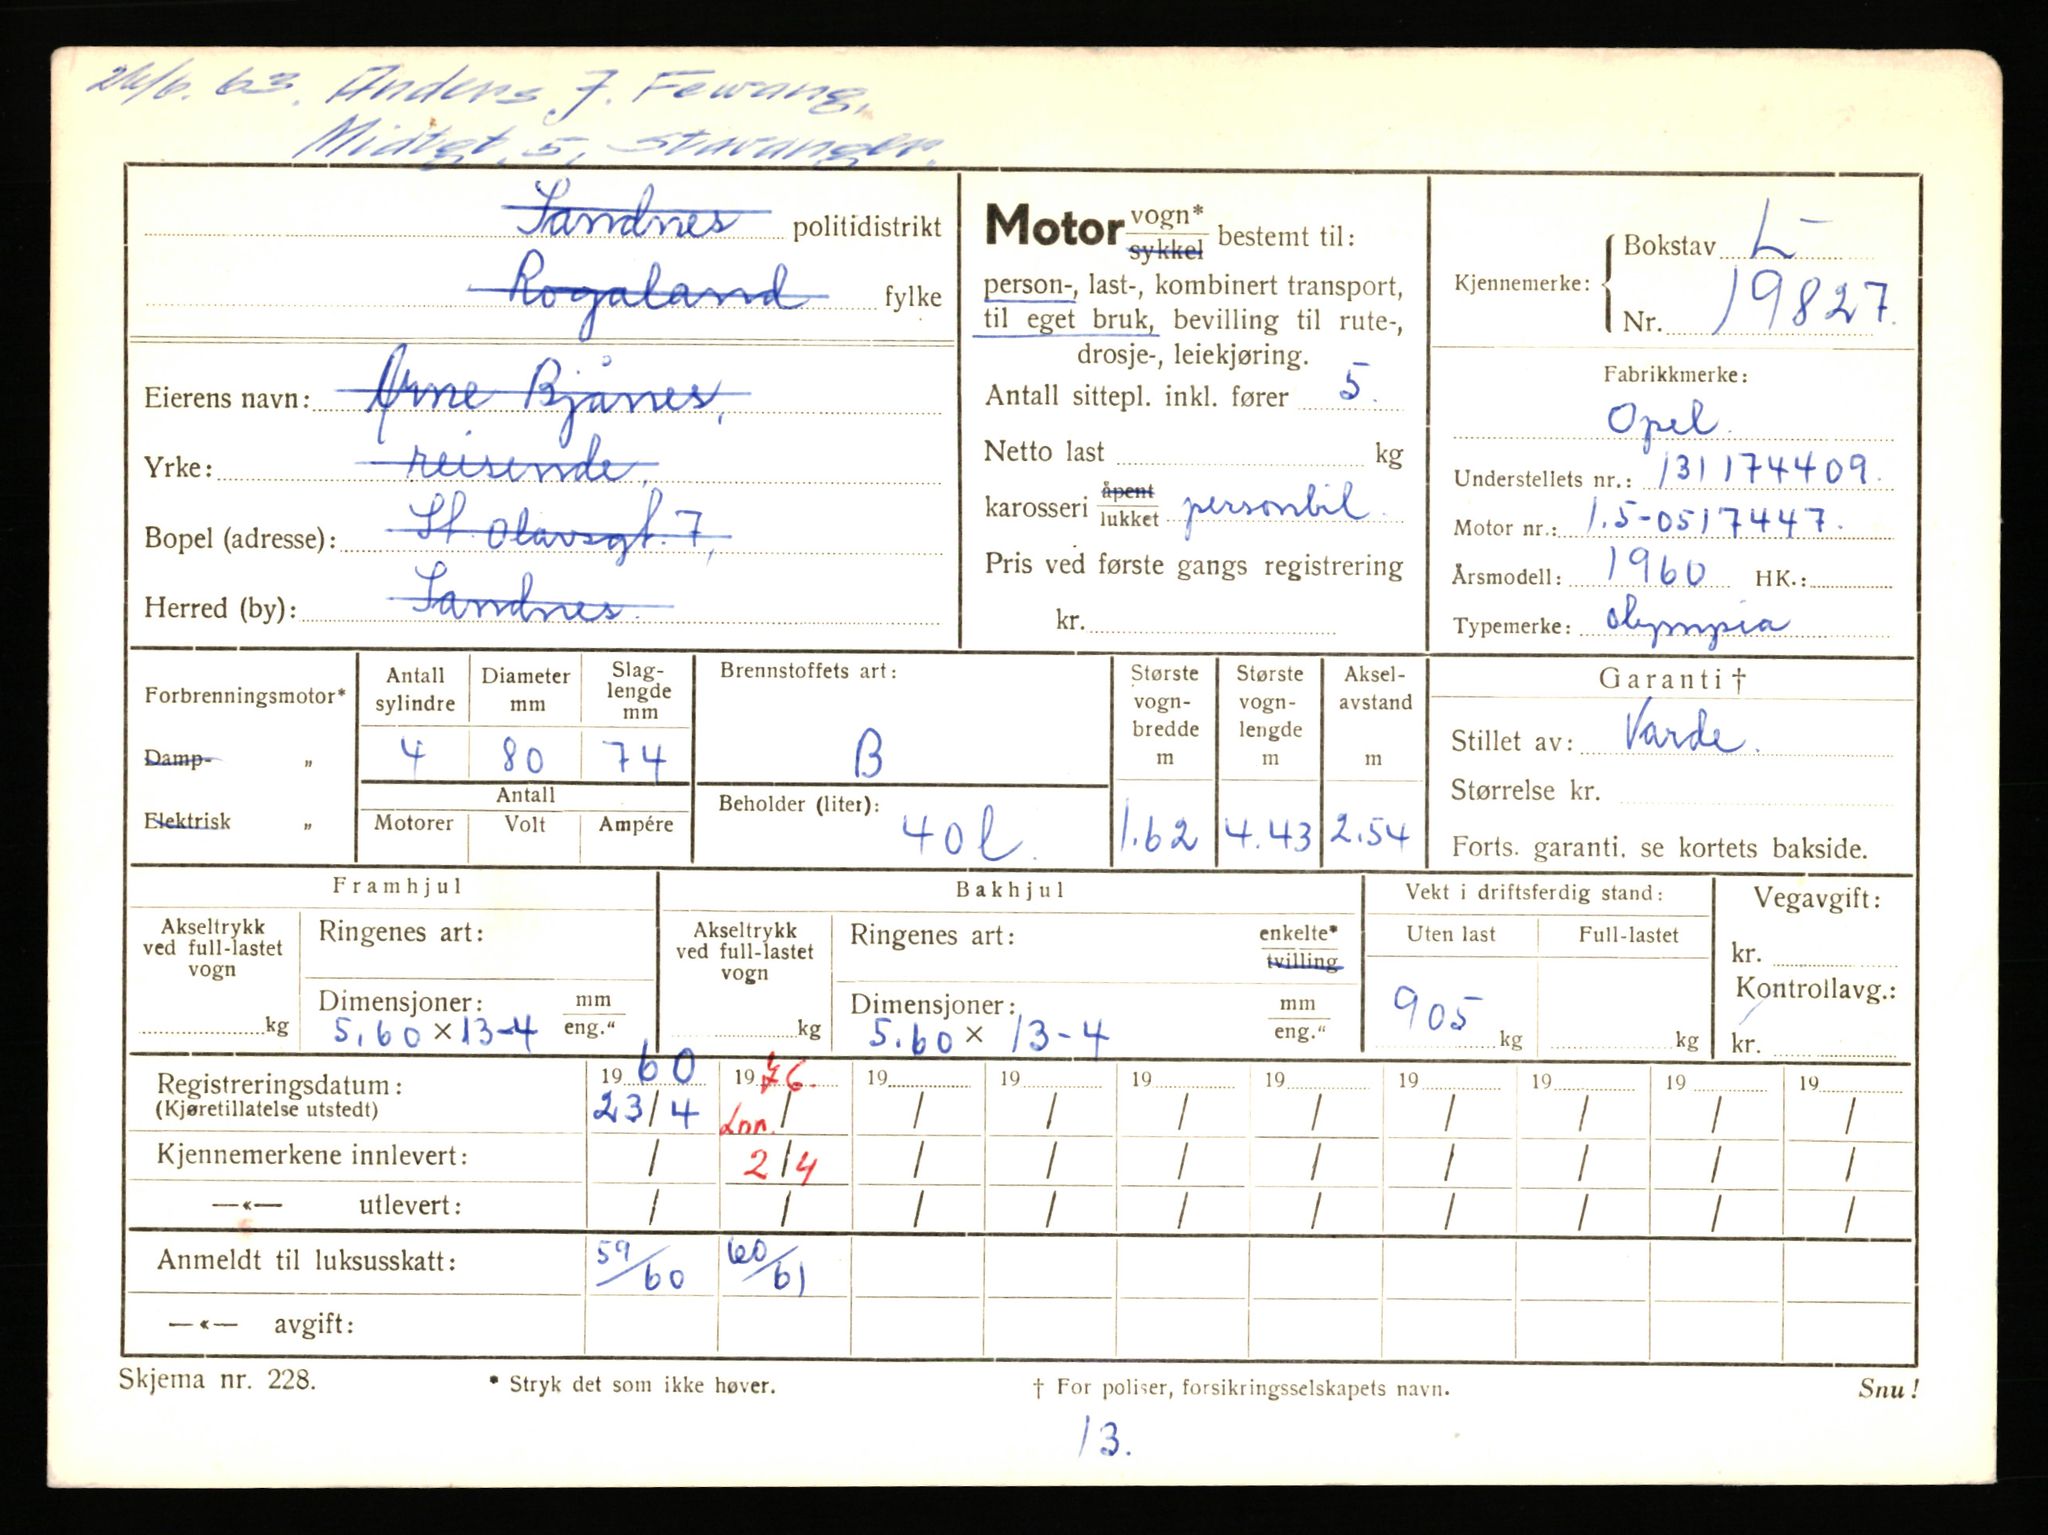 26/6. 63. Anders J. Fewang,
Midtgt. 5, Stavanger.
Sandnes politidistrikt
Rogaland fylke
Eierens navn: Arne Bjånes,
Yrke: reisende,
Bopel (adresse): St. Olavsgt. 7,
Herred (by): Sandnes.
Motor vogn* sykkel bestemt til:
person-, last-, kombinert transport,
til eget bruk, bevilling til rute-,
drosje-, leiekjøring.
Antall sittepl. inkl. fører 5.
Netto last kg
karosseri åpent lukket personbil.
Pris ved første gangs registrering
kr.
Kjennemerke: Bokstav L-
Nr. 19827.
Fabrikkmerke:
Opel.
Understellets nr.: 131174409.
Motor nr.: 1.5-0517447.
Årsmodell: 1960 HK.:
Typemerke: Olympia
Forbrenningsmotor*
Damp- „
Elektrisk „
Antall sylindre Diameter mm Slag-lengde mm
4 80 74
Antall
Motorer Volt Ampére
Brennstoffets art:
B
Beholder (liter):
40 l.
Største vogn-bredde m
1.62
Største vogn-lengde m
4.43
Aksel-avstand m
2.54
Garanti †
Stillet av: Varde.
Størrelse kr.
Forts. garanti. se kortets bakside.
Framhjul
Akseltrykk ved full-lastet vogn
kg
Ringenes art:
Dimensjoner: mm eng."
5.60 × 13-4
Bakhjul
Akseltrykk ved full-lastet vogn
kg
Ringenes art: enkelte* tvilling
Dimensjoner: mm eng."
5.60 × 13-4
Vekt i driftsferdig stand:
Uten last Full-lastet
905 kg kg
Vegavgift:
kr.
Kontrollavg.:
kr.
Registreringsdatum: 19 60 19 76. 19 19 19 19 19 19 19 19
(Kjøretillatelse utstedt) 23/4 / / / / / / / / /
Kjennemerkene innlevert: / 2/4 / / / / / / / /
—«— utlevert: / / / / / / / / / /
Anmeldt til luksusskatt: 59/60 60/61
—«— avgift:
Skjema nr. 228. * Stryk det som ikke høver. † For poliser, forsikringsselskapets navn. Snu!
13.